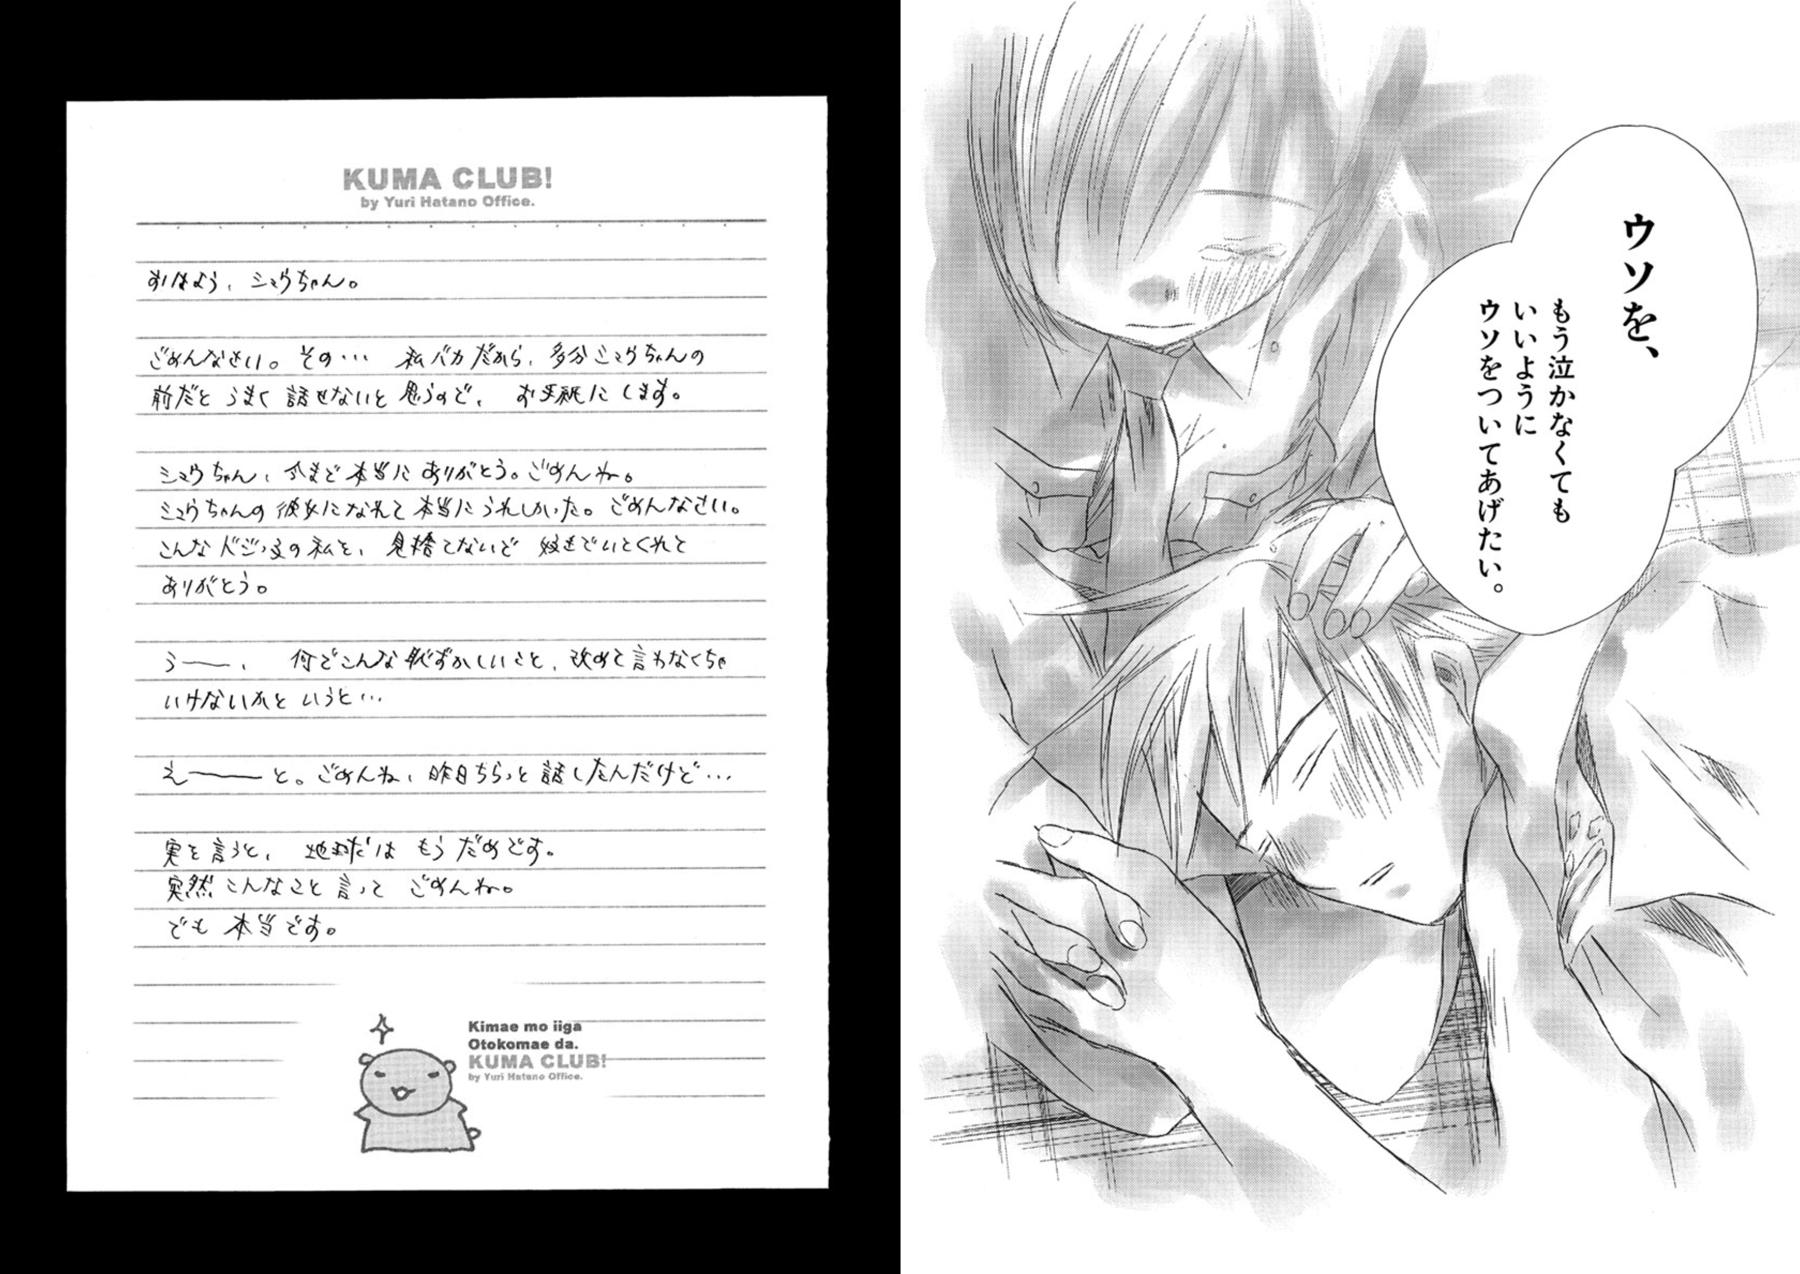 ウソを、
もう泣かなくても
いいように
ウソをついてあげたい。
KUMA CLUB!
by Yuri Hatano Office.
おはよう、シュウちゃん。
ごめんなさい。その… 私バカだから、多分シュウちゃんの
前だと うまく 話せないと 思うので、 お手紙に します。
シュウちゃん、今まで 本当に ありがとう。ごめんね。
シュウちゃんの 彼女になれて 本当にうれしかった。ごめんなさい。
こんな の 私を、 見捨てないで 好きでいてくれて
ありがとう。
う――、 何でこんな 恥ずかしいこと、改めて言わなくちゃ
いけないかと いうと…
え――――と。ごめんね、昨日ちらっと 話したんだけど…
実を言うと、 地球は もう だめです。
突然 こんなこと 言って ごめんね。
でも 本当です。
Kimae mo iiga
Otokomae da.
KUMA CLUB!
by Yuri Hatano Office.